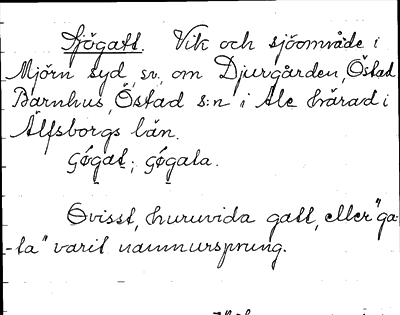 Sjögatt. Vik och sjöområde i
Mjörn syd, sv. om Djurgården, Östad
Barnhus, Östad s:n i Ale härad i
Älfsborgs län.
gǿgat; gǿgata.
Ovisst, huruvida gatt, eller "ga-
-ta" varit namnursprung.